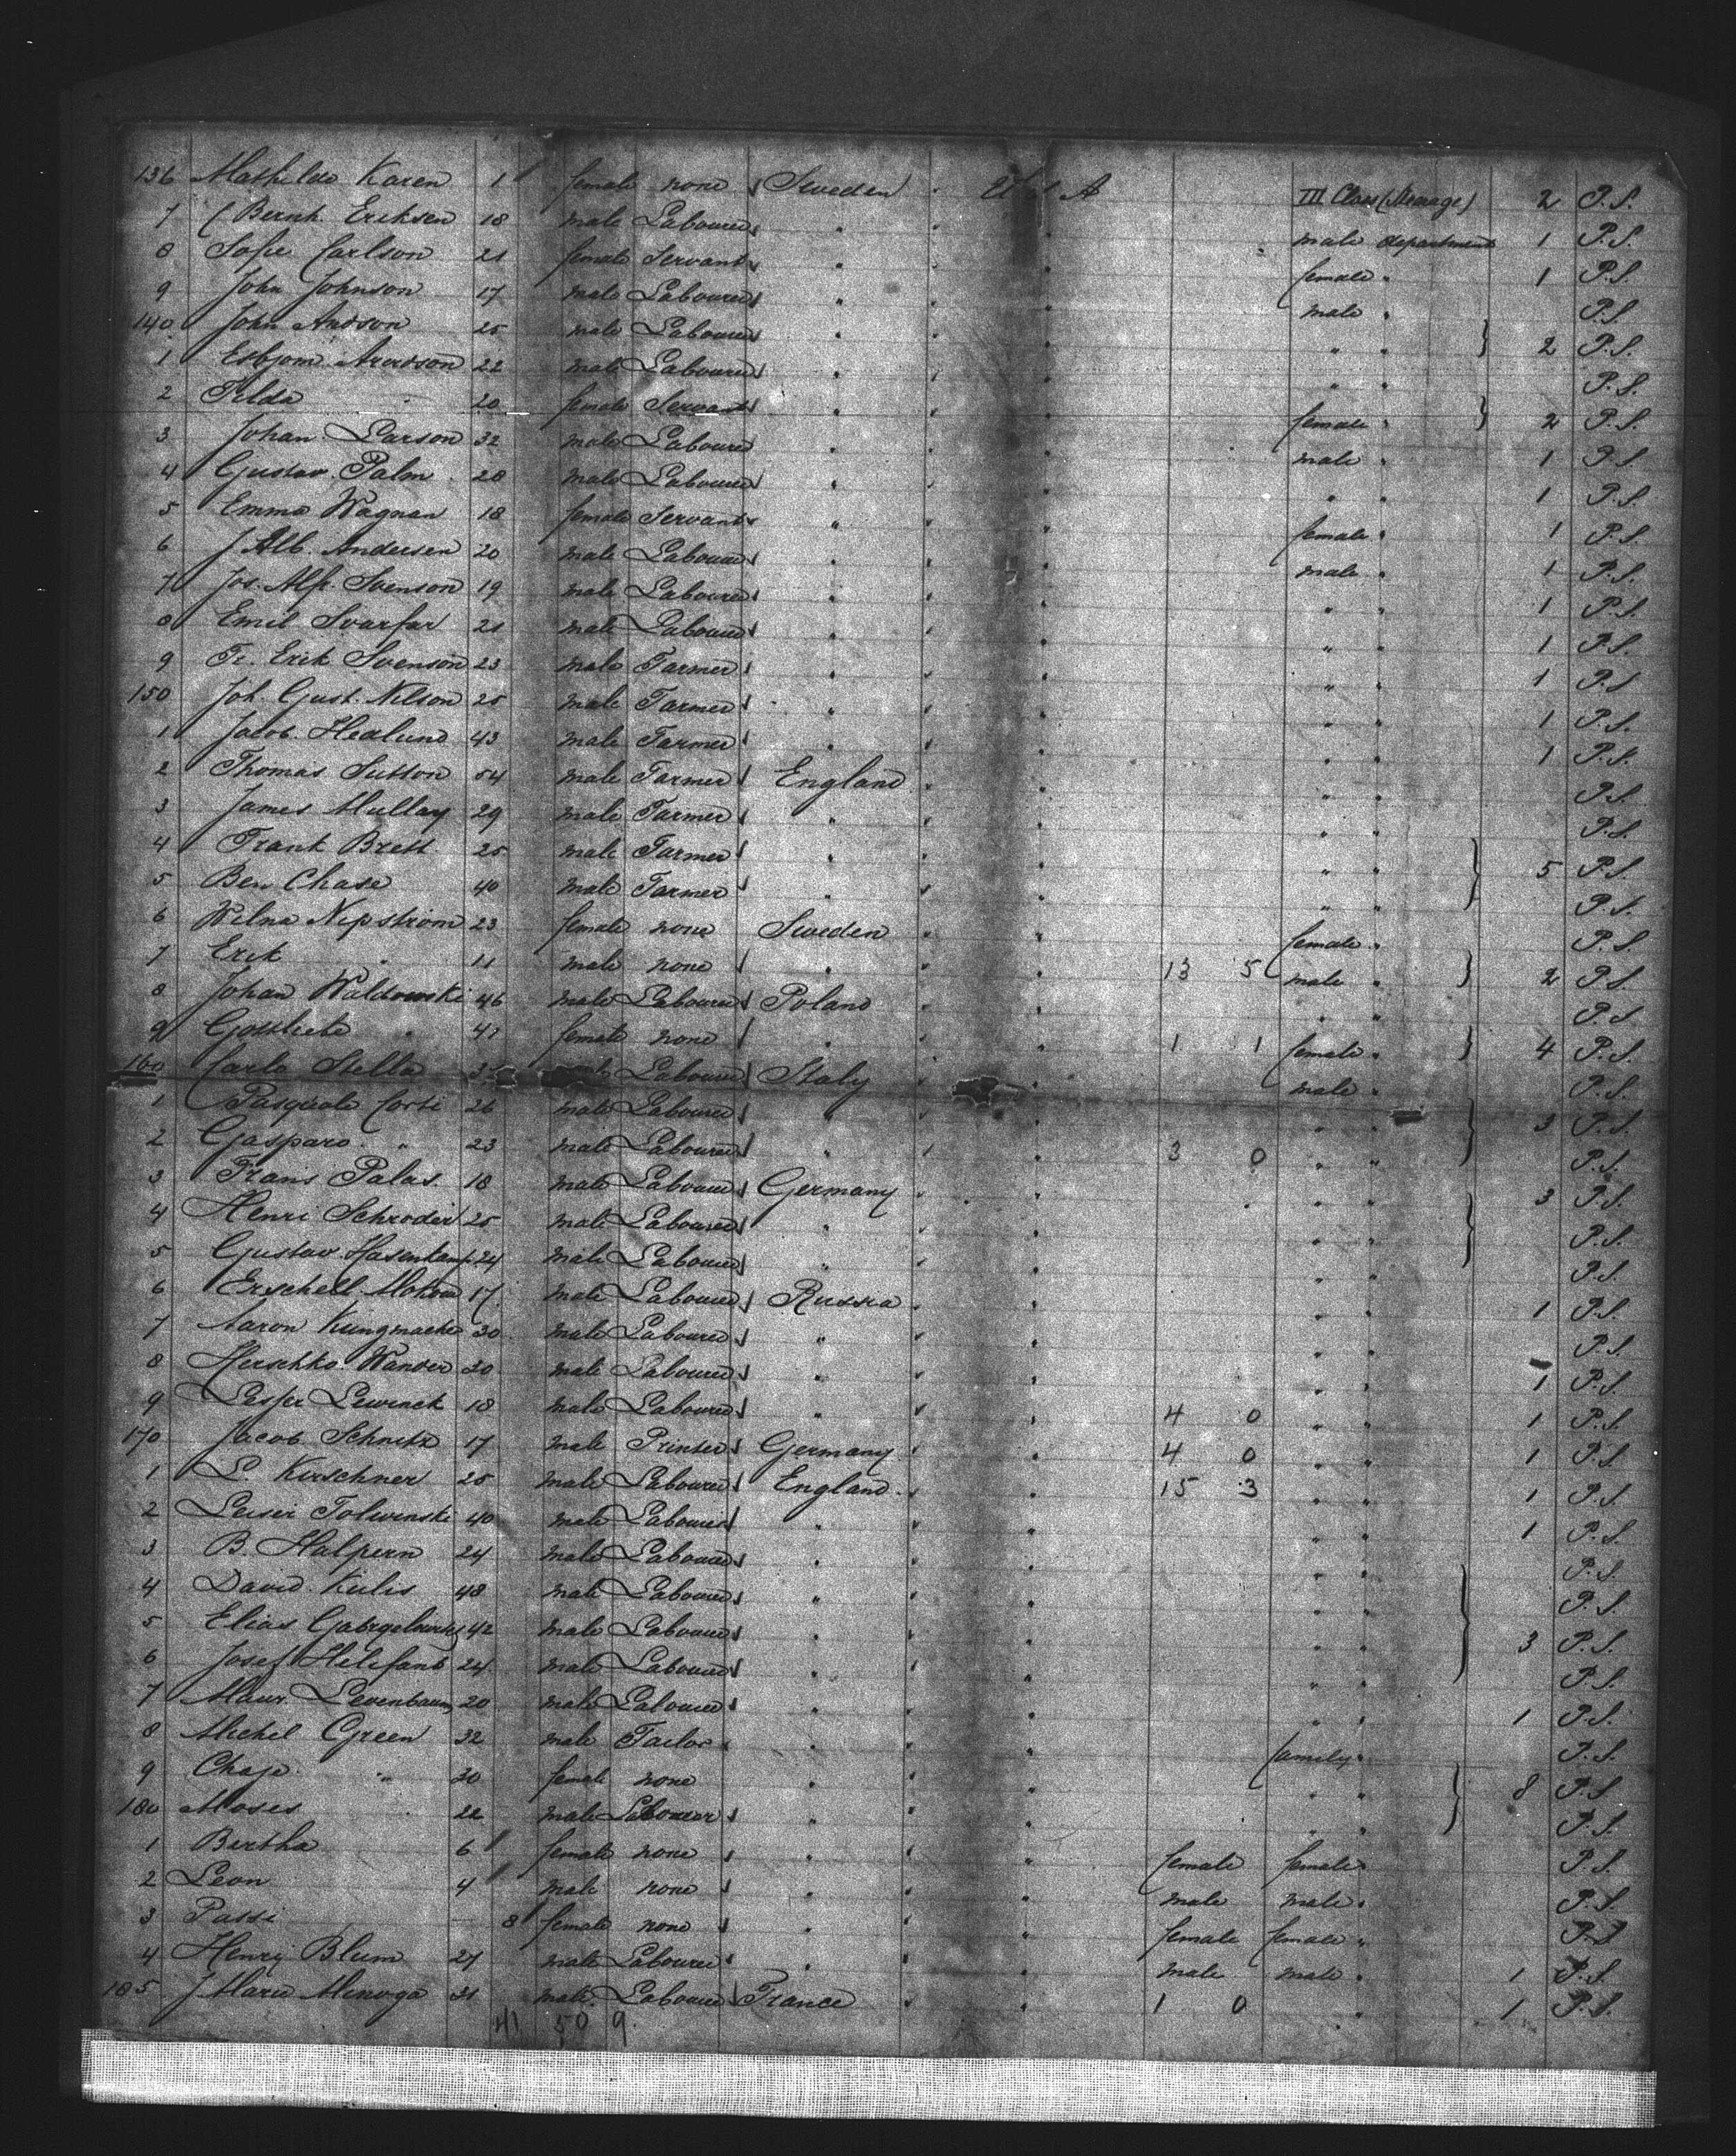 136 Mathilde Karen 1 female none Sweden U S A III Class (Steerage) 2 P.S.
7 Bernh. Eriksen 18 male Labourer " " " male department 1 P.S.
8 Sofie Carlson 21 female Servant " " " female " 1 P.S.
9 John Johnson 17 male Labourer " " " male " P.S.
140 John 25 male Labourer " " " " " 2 P.S.
1 22 male Labourer " " " " " P.S.
2 Tilda " 20 female Servant " " " female " 2 P.S.
3 Johan Larson 32 male Labourer " " " male " 1 P.S.
4 Gustav Palm 20 male Labourer " " " " " 1 P.S.
5 Emma Wagnan 18 female Servant " " " female " 1 P.S.
6 J. Alb. Andersen 20 male Labourer " " " male " 1 P.S.
7 Jos. Alf. Svenson 19 male Labourer " " " " " 1 P.S.
8 Emil Svarfar 21 male Labourer " " " " " 1 P.S.
9 Fr. Erik Svenson 23 male Farmer " " " " " 1 P.S.
150 Joh. Gust. Nilson 25 male Farmer " " " " " 1 P.S.
1 Jacob Hedlund 43 male Farmer " " " " " 1 P.S.
2 Thomas Sutton 54 male Farmer England " " " " P.S.
3 James Mullay 29 male Farmer " " " " " P.S.
4 Frank Brett 25 male Farmer " " " " " 5 P.S.
5 Ben Chase 40 male Farmer " " " " " P.S.
6 Wilna Nipström 23 female none Sweden " " female " P.S.
7 Erik " 11 male none " " " 13 5 male " 2 P.S.
8 Johan Waldowski 46 male Labourer Poland " " " " P.S.
9 Gottliebe " 47 female none " " " 1 1 female " 4 P.S.
160 Carlo Stella Labourer Italy " " male " P.S.
1 Pasquale Corti 26 male Labourer " " " " " 3 P.S.
2 Gasparo " 23 male Labourer " " " 3 0 " " P.S.
3 Frans Palas 18 male Labourer Germany " " " " 3 P.S.
4 Henri Schroder 25 male Labourer " " " " " P.S.
5 Gustav Hasenkamp 24 male Labourer " " " " " P.S.
6 Erschell 17 male Labourer Russia " " " " 1 P.S.
7 Aaron 30 male Labourer " " " " " P.S.
8 Herschko Wander 20 male Labourer " " " " " 1 P.S.
9 Lesser Lewinck 18 male Labourer " " " 4 0 " " 1 P.S.
170 Jacob 17 male Printer Germany " " 4 0 " " 1 P.S.
1 L. Kirschner 25 male Labourer England " " 15 3 " " 1 P.S.
2 Leiser Tolwinski 40 male Labourer " " " " " 1 P.S.
3 B. Halpern 24 male Labourer " " " " " P.S.
4 David Kulis 48 male Labourer " " " " " P.S.
5 Elias 42 male Labourer " " " " " 3 P.S.
6 Josef Helefant 24 male Labourer " " " " " P.S.
7 Maur. Levenbaum 20 male Labourer " " " " " 1 P.S.
8 Michel Green 32 male Tailor " " " family " P.S.
9 Chaje " 30 female none " " " " " 8 P.S.
180 Moses " 22 male Labourer " " " " " P.S.
1 Bertha 6 female none " " " female female " P.S.
2 Leon 4 male none " " " male male " P.S.
3 Passi 8 female none " " " female female " P.S.
4 Henry Blum 27 male Labourer " " " male male " 1 P.S.
185 J Marie Minoga 31 male Labourer France " " 1 0 " 1 P.S.
41 50 9